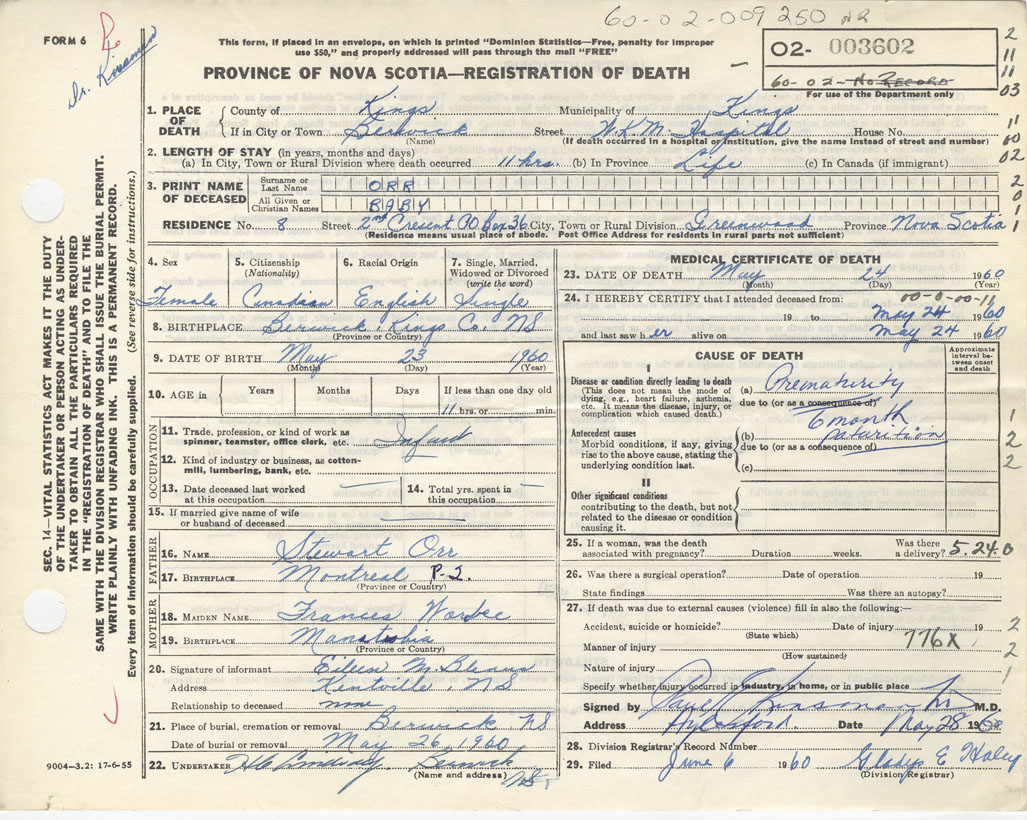 60-02-009 250 NR
FORM 6
Dr. Kinsman
This form, if placed in an envelope, on which is printed "Dominion Statistics—Free, penalty for improper
use $50," and properly addressed will pass through the mail "FREE"
02- 003602
60-02-No RECORD
For use of the Department only
2
11
11
03
PROVINCE OF NOVA SCOTIA—REGISTRATION OF DEATH
1. PLACE OF DEATH County of Kings Municipality of Kings
If in City or Town Berwick Street W.K.M. Hospital House No.
(Name) (If death occurred in a hospital or institution, give the name instead of street and number)
11
60
02
2. LENGTH OF STAY (in years, months and days)
(a) In City, Town or Rural Division where death occurred 11 hrs. (b) In Province Life (c) In Canada (if immigrant)
3. PRINT NAME OF DECEASED Surname or Last Name ORR
All Given or Christian Names BABY
2
0
1
1
RESIDENCE No. 8 Street 2nd Cresent PO Box 36 City, Town or Rural Division Greenwood Province Nova Scotia
(Residence means usual place of abode. Post Office Address for residents in rural parts not sufficient)
4. Sex 5. Citizenship (Nationality) 6. Racial Origin 7. Single, Married, Widowed or Divorced (write the word)
Female Canadian English Single
8. BIRTHPLACE Berwick, Kings Co. NS
(Province or Country)
9. DATE OF BIRTH May 23 1960
(Month) (Day) (Year)
10. AGE in Years Months Days If less than one day old
11 hrs. or min.
OCCUPATION
11. Trade, profession, or kind of work as
spinner, teamster, office clerk, etc. Infant
12. Kind of industry or business, as cotton-
mill, lumbering, bank, etc.
13. Date deceased last worked
at this occupation
14. Total yrs. spent in
this occupation.
15. If married give name of wife
or husband of deceased
FATHER
16. NAME Stewart Orr
17. BIRTHPLACE Montreal P-2.
(Province or Country)
MOTHER
18. MAIDEN NAME Frances
19. BIRTHPLACE
(Province or Country)
20. Signature of informant Eileen M.
Address Kentville, NS
Relationship to deceased none
21. Place of burial, cremation or removal Berwick NS
Date of burial or removal May 26, 1960
22. UNDERTAKER Berwick
(Name and address) NS
MEDICAL CERTIFICATE OF DEATH
23. DATE OF DEATH May 24 1960
(Month) (Day) (Year)
24. I HEREBY CERTIFY that I attended deceased from: 00-0-00-11
19 to May 24 1960
and last saw h er alive on May 24 1960
CAUSE OF DEATH
Approximate interval between onset and death
I
Disease or condition directly leading to death
(This does not mean the mode of
dying, e.g., heart failure, asthenia,
etc. It means the disease, injury, or
complication which caused death.)
(a) Prematurity
due to (or as a consequence of)
6 month
Antecedent causes
Morbid conditions, if any, giving
rise to the above cause, stating the
underlying condition last.
(b)
due to (or as a consequence of)
(c)
1
2
2
II
Other significant conditions
contributing to the death, but not
related to the disease or condition
causing it.
25. If a woman, was the death
associated with pregnancy? Duration weeks. Was there
a delivery? 5.24.0
26. Was there a surgical operation? Date of operation 19
State findings Was there an autopsy?
27. If death was due to external causes (violence) fill in also the following:—
Accident, suicide or homicide? Date of injury 19
(State which)
Manner of injury 776X
(How sustained)
Nature of injury
Specify whether injury occurred in industry, in home, or in public place
2
2
1
Signed by Kinsman M.D.
Address Aylesford Date May 28 1960
28. Division Registrar's Record Number
29. Filed June 6 1960 Gladys E Haley
(Division Registrar)
SEC. 14—VITAL STATISTICS ACT MAKES IT THE DUTY
OF THE UNDERTAKER OR PERSON ACTING AS UNDER-
TAKER TO OBTAIN ALL THE PARTICULARS REQUIRED
IN THE "REGISTRATION OF DEATH" AND TO FILE THE
SAME WITH THE DIVISION REGISTRAR WHO SHALL ISSUE THE BURIAL PERMIT.
WRITE PLAINLY WITH UNFADING INK. THIS IS A PERMANENT RECORD.
Every item of information should be carefully supplied. (See reverse side for instructions.)
9004-3.2: 17-6-55